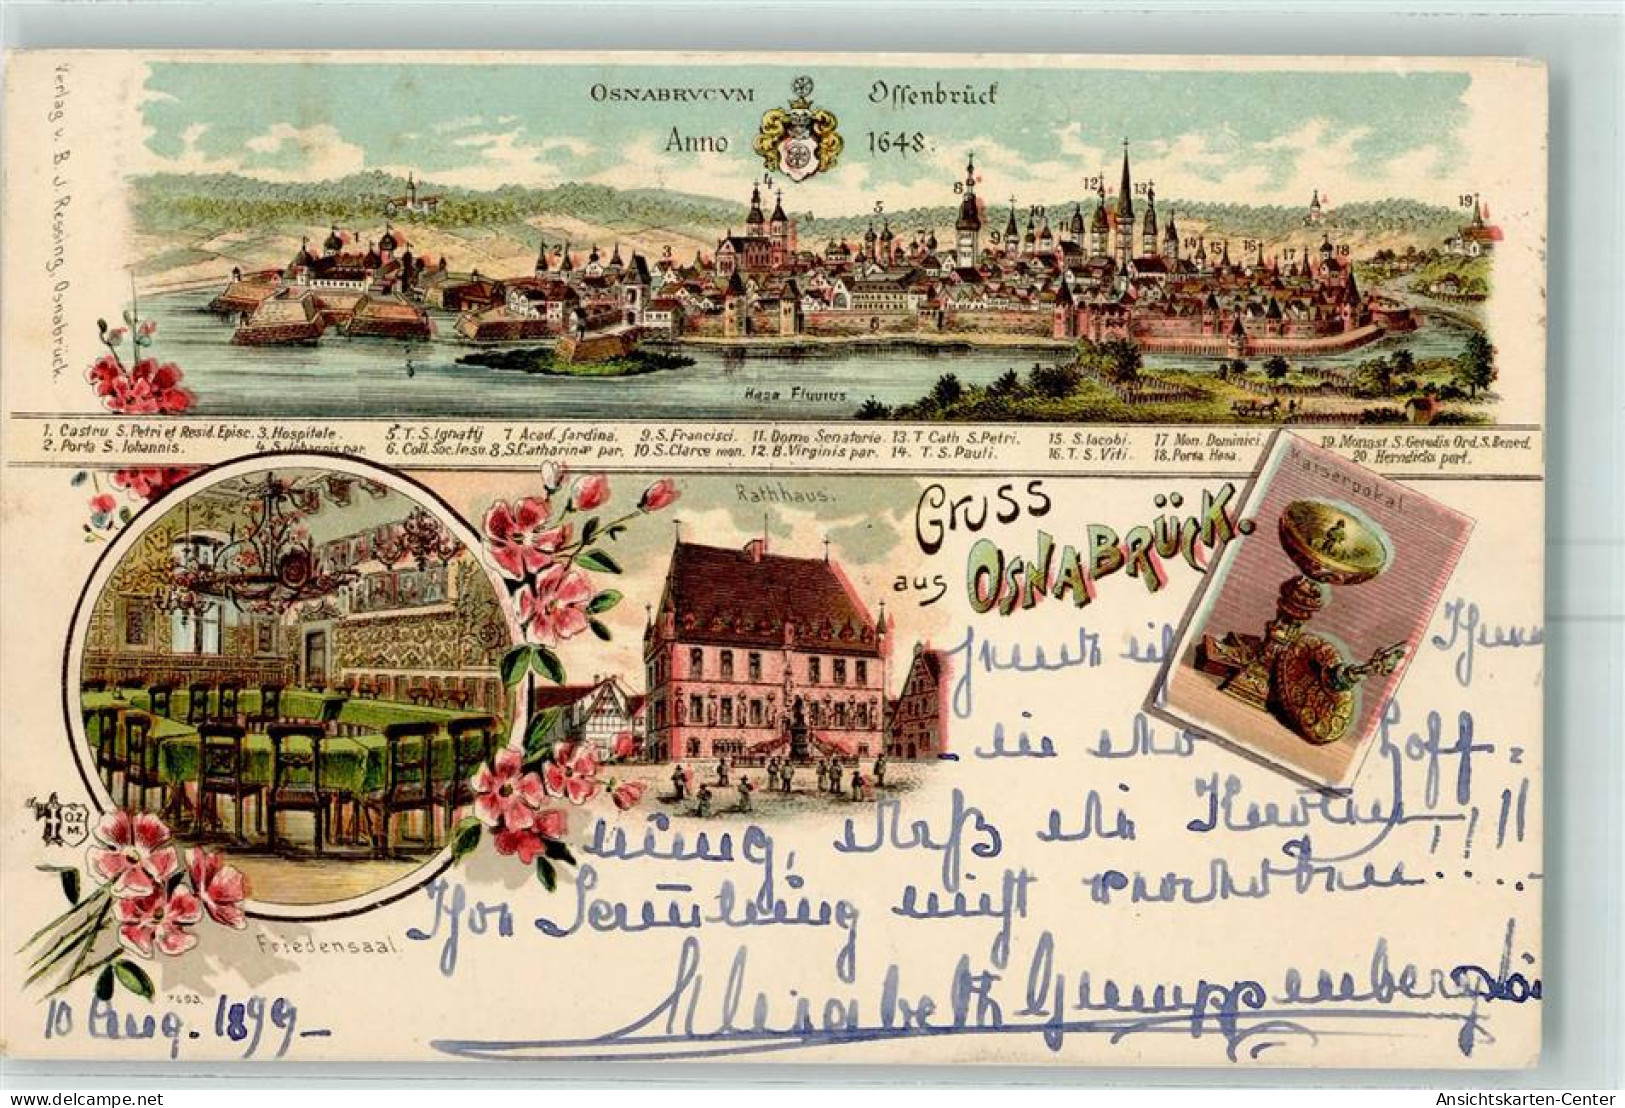 Verlag v. B. J. Ressing, Osnabrück.
OSNABRVCVM Ossenbrück
Anno 1648.
1 2 3 4 5 7 8 9 10 11 12 13 14 15 16 17 18 19
6
Hasa Fluuius
1. Castru S. Petri et Resid. Episc. 3. Hospitale 5. T. S. Ignatij 7 Acad. fardina. 9. S. Francisci. 11. Domo Senatoria 13. T Cath S. Petri. 15. S. Iacobi. 17 Mon. Dominici. 19. Monast S. Gerudis Ord. S. Bened.
2. Porta S. Iohannis. 4. S. Iohannis par. 6. Coll. Soc. Iesu. 8. S. Catharinæ par. 10 S. Claræ mon. 12. B. Virginis par. 14. T. S. Pauli. 16. T. S. Viti. 18. Porta Hasa. 20. Herndicks port.
Rathhaus.
Gruss
aus OSNABRÜCK.
Kaiserpokal
O.Z.
M.
Friedensaal.
7493
in der Hoff=
nung, daß die Karten,,!!!
Ihre Sammlung nicht !...
Elisabeth Gumppenberg
10 Aug. 1899–
Ansichtskarten-Center
www.delcampe.net